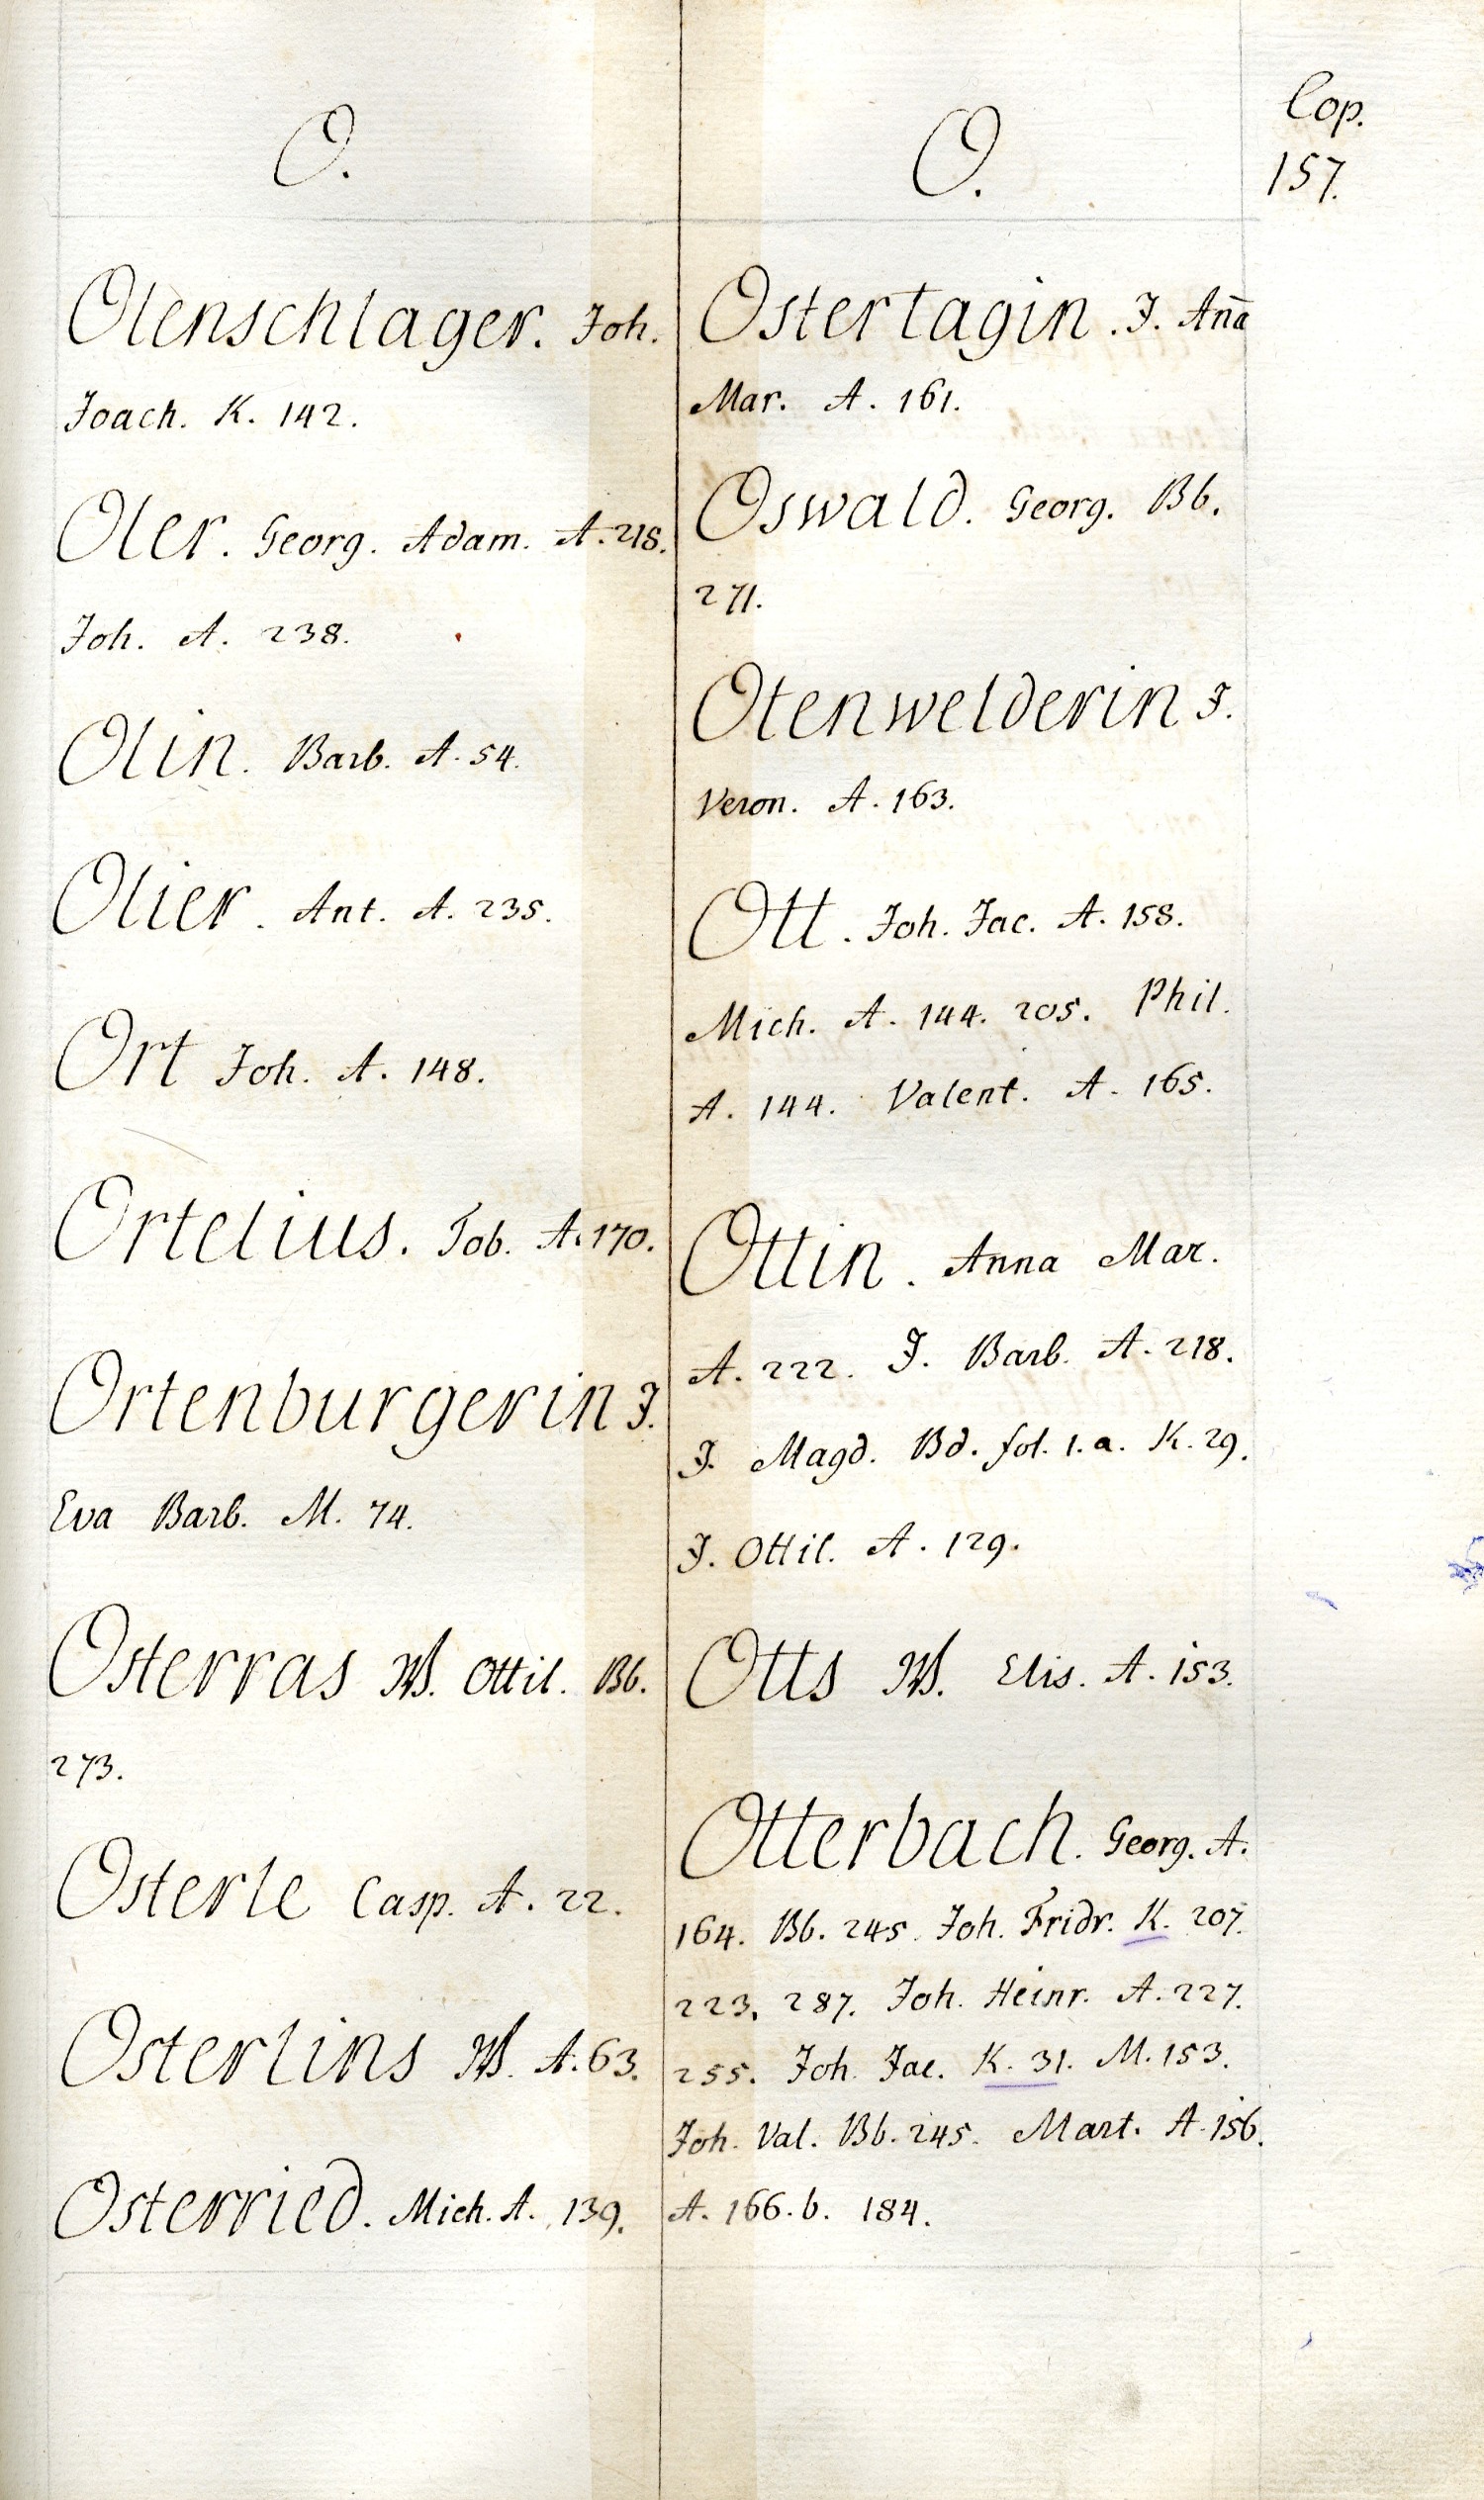 O.
Olenschlager. Joh.
Joach. K. 142.
Oler. Georg. Adam. A. 218.
Joh. A. 238.
Olin. Barb. A. 54.
Olier. Ant. A. 235.
Ort Joh. A. 148.
Ortelius. Tob. A. 170.
Ortenburgerin J.
Eva Barb. M. 74.
Osterras W. Ottil. Bb.
273.
Osterle Casp. A. 22.
Osterlins W. A. 63.
Osterried. Mich. A. 139.
O.
Cop.
157.
Ostertagin. J. An̄a
Mar. A. 161.
Oswald. Georg. Bb.
271.
Otenwelderin J.
Veron. A. 163.
Ott. Joh. Jac. A. 158.
Mich. A. 144. 205. Phil.
A. 144. Valent. A. 165.
Ottin. Anna Mar.
A. 222. J. Barb. A. 218.
J. Magd. Bd. fol. 1. a. K. 29.
J. Ottil. A. 129.
Otts W. Elis. A. 153.
Otterbach. Georg. A.
164. Bb. 245. Joh. Fridr. K. 207.
223, 287. Joh. Heinr. A. 227.
255. Joh. Jac. K. 31. M. 153.
Joh. Val. Bb. 245. Mart. A. 156.
A. 166. b. 184.